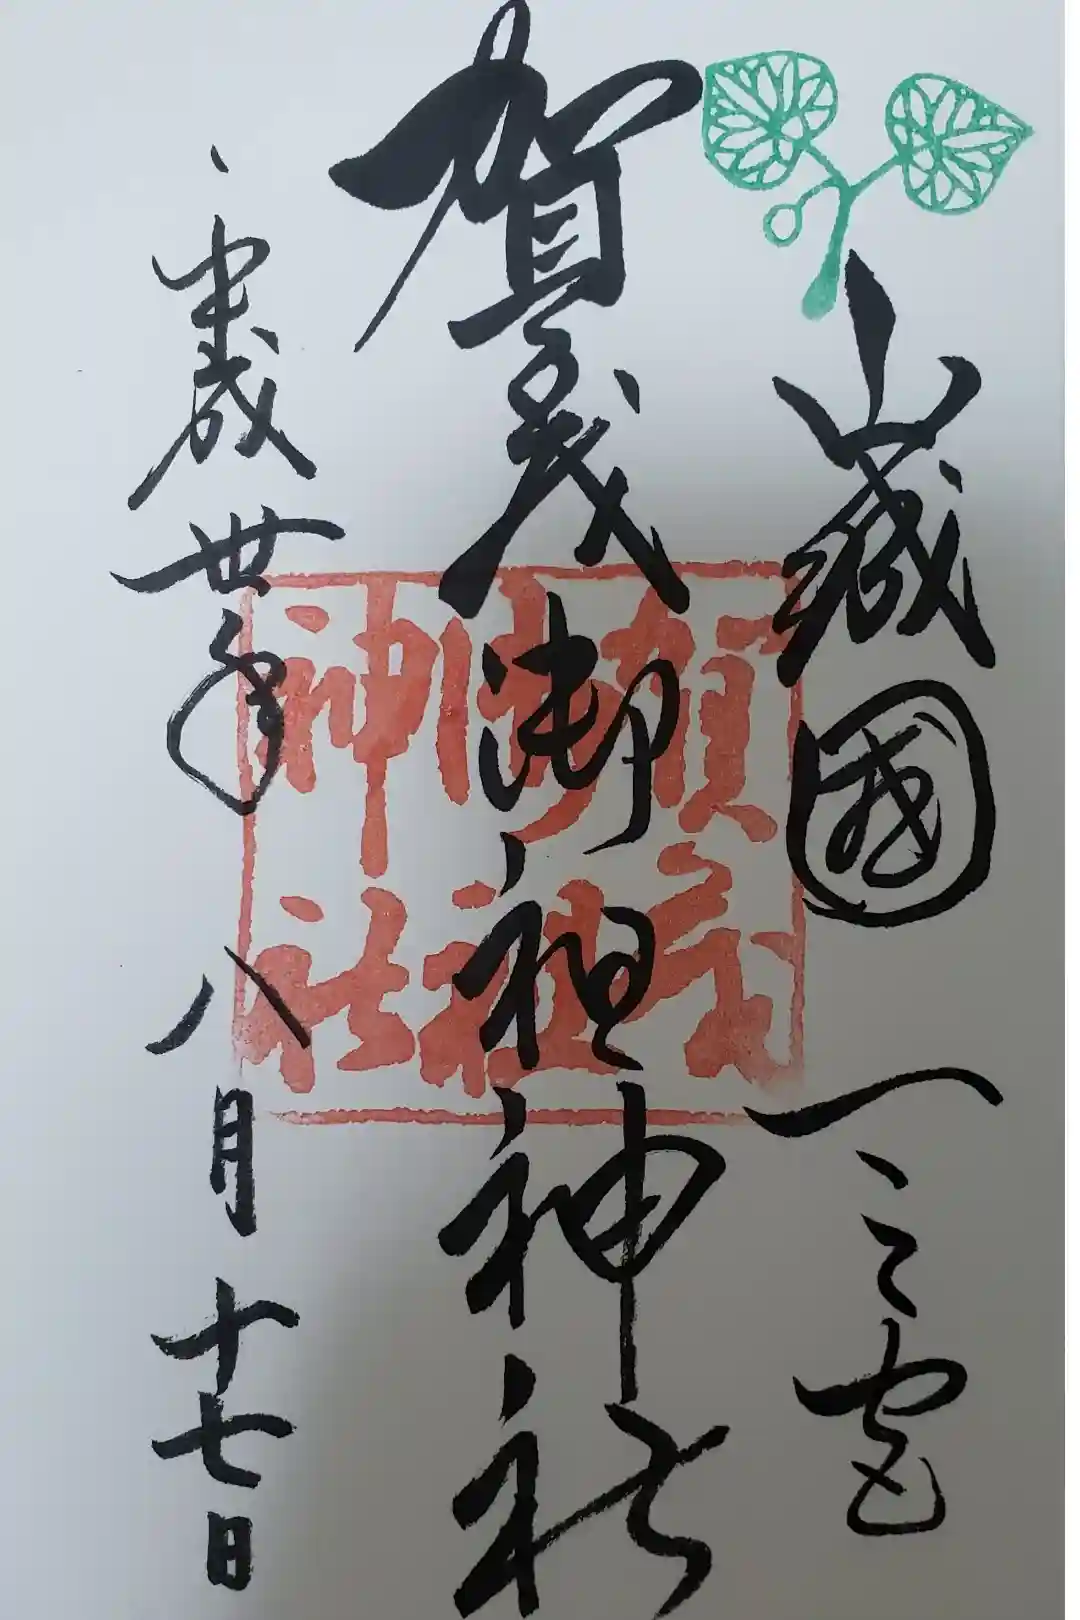 山城國一之宮
賀茂御祖神社
平成卅年八月十七日
賀茂
御祖
神社